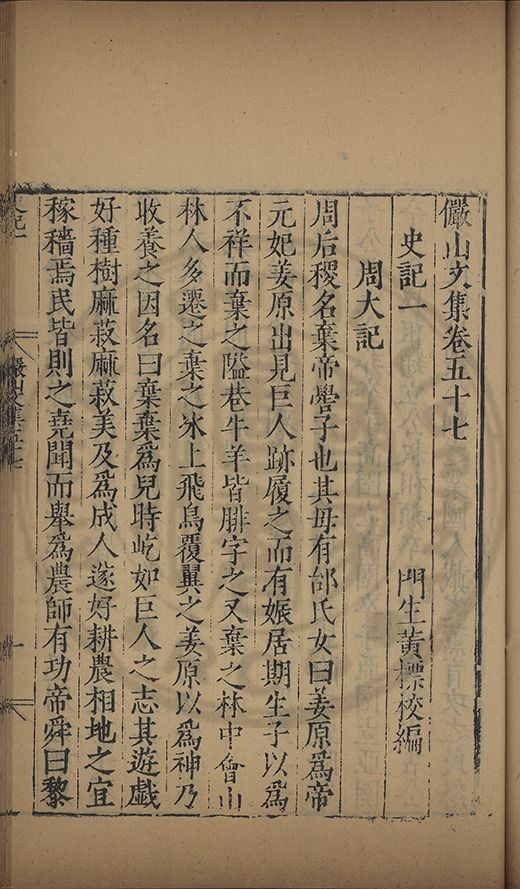 儼山文集卷五十七
史記一　門生黃標校編
周大記
周后稷名棄帝嚳子也其母有邰氏女曰姜原爲帝
元妃姜原出見巨人跡履之而有娠居期生子以爲
不祥而棄之隘巷牛羊皆腓字之又棄之林中會山
林人多遷之棄之氷上飛鳥覆翼之姜原以爲神乃
收養之因名曰棄棄爲兒時屹如巨人之志其遊戲
好種樹麻菽麻菽美及爲成人遂好耕農相地之宜
稼穡焉民皆則之堯聞而舉爲農師有功帝舜曰黎